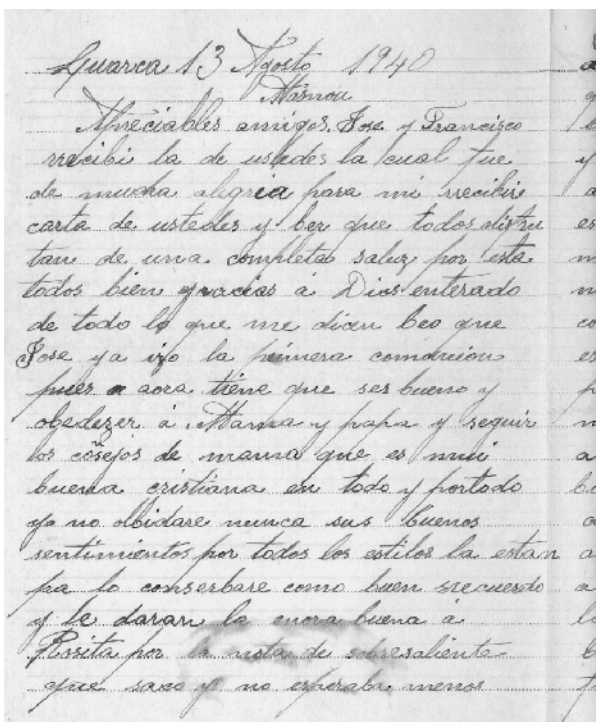 Guarca 13 Agosto 1940
Masnou
Apreciables amigos. Jose y Francisco
rrecibi la de ustedes la cual fue
de mucha alegria para mi rrecibir
carta de ustedes y ber que todos disfru
tan de una completa saluz por esta
todos bien gracias á Dios enterado
de todo lo que me dicen beo que
Jose ya izo la primera comunion
pues aora tiene que ser bueno y
obedezer á Mama y papa y seguir
los cōsejos de mama que es mui
buena cristiana en todo y portodo
yo no olbidare nunca sus buenos
sentimientos por todos los estilos la estan
pa lo conserbare como buen rrecuerdo
y le daran la enora buena á
Rosita por la nota de sobresaliente
que saco yo no esperaba menos